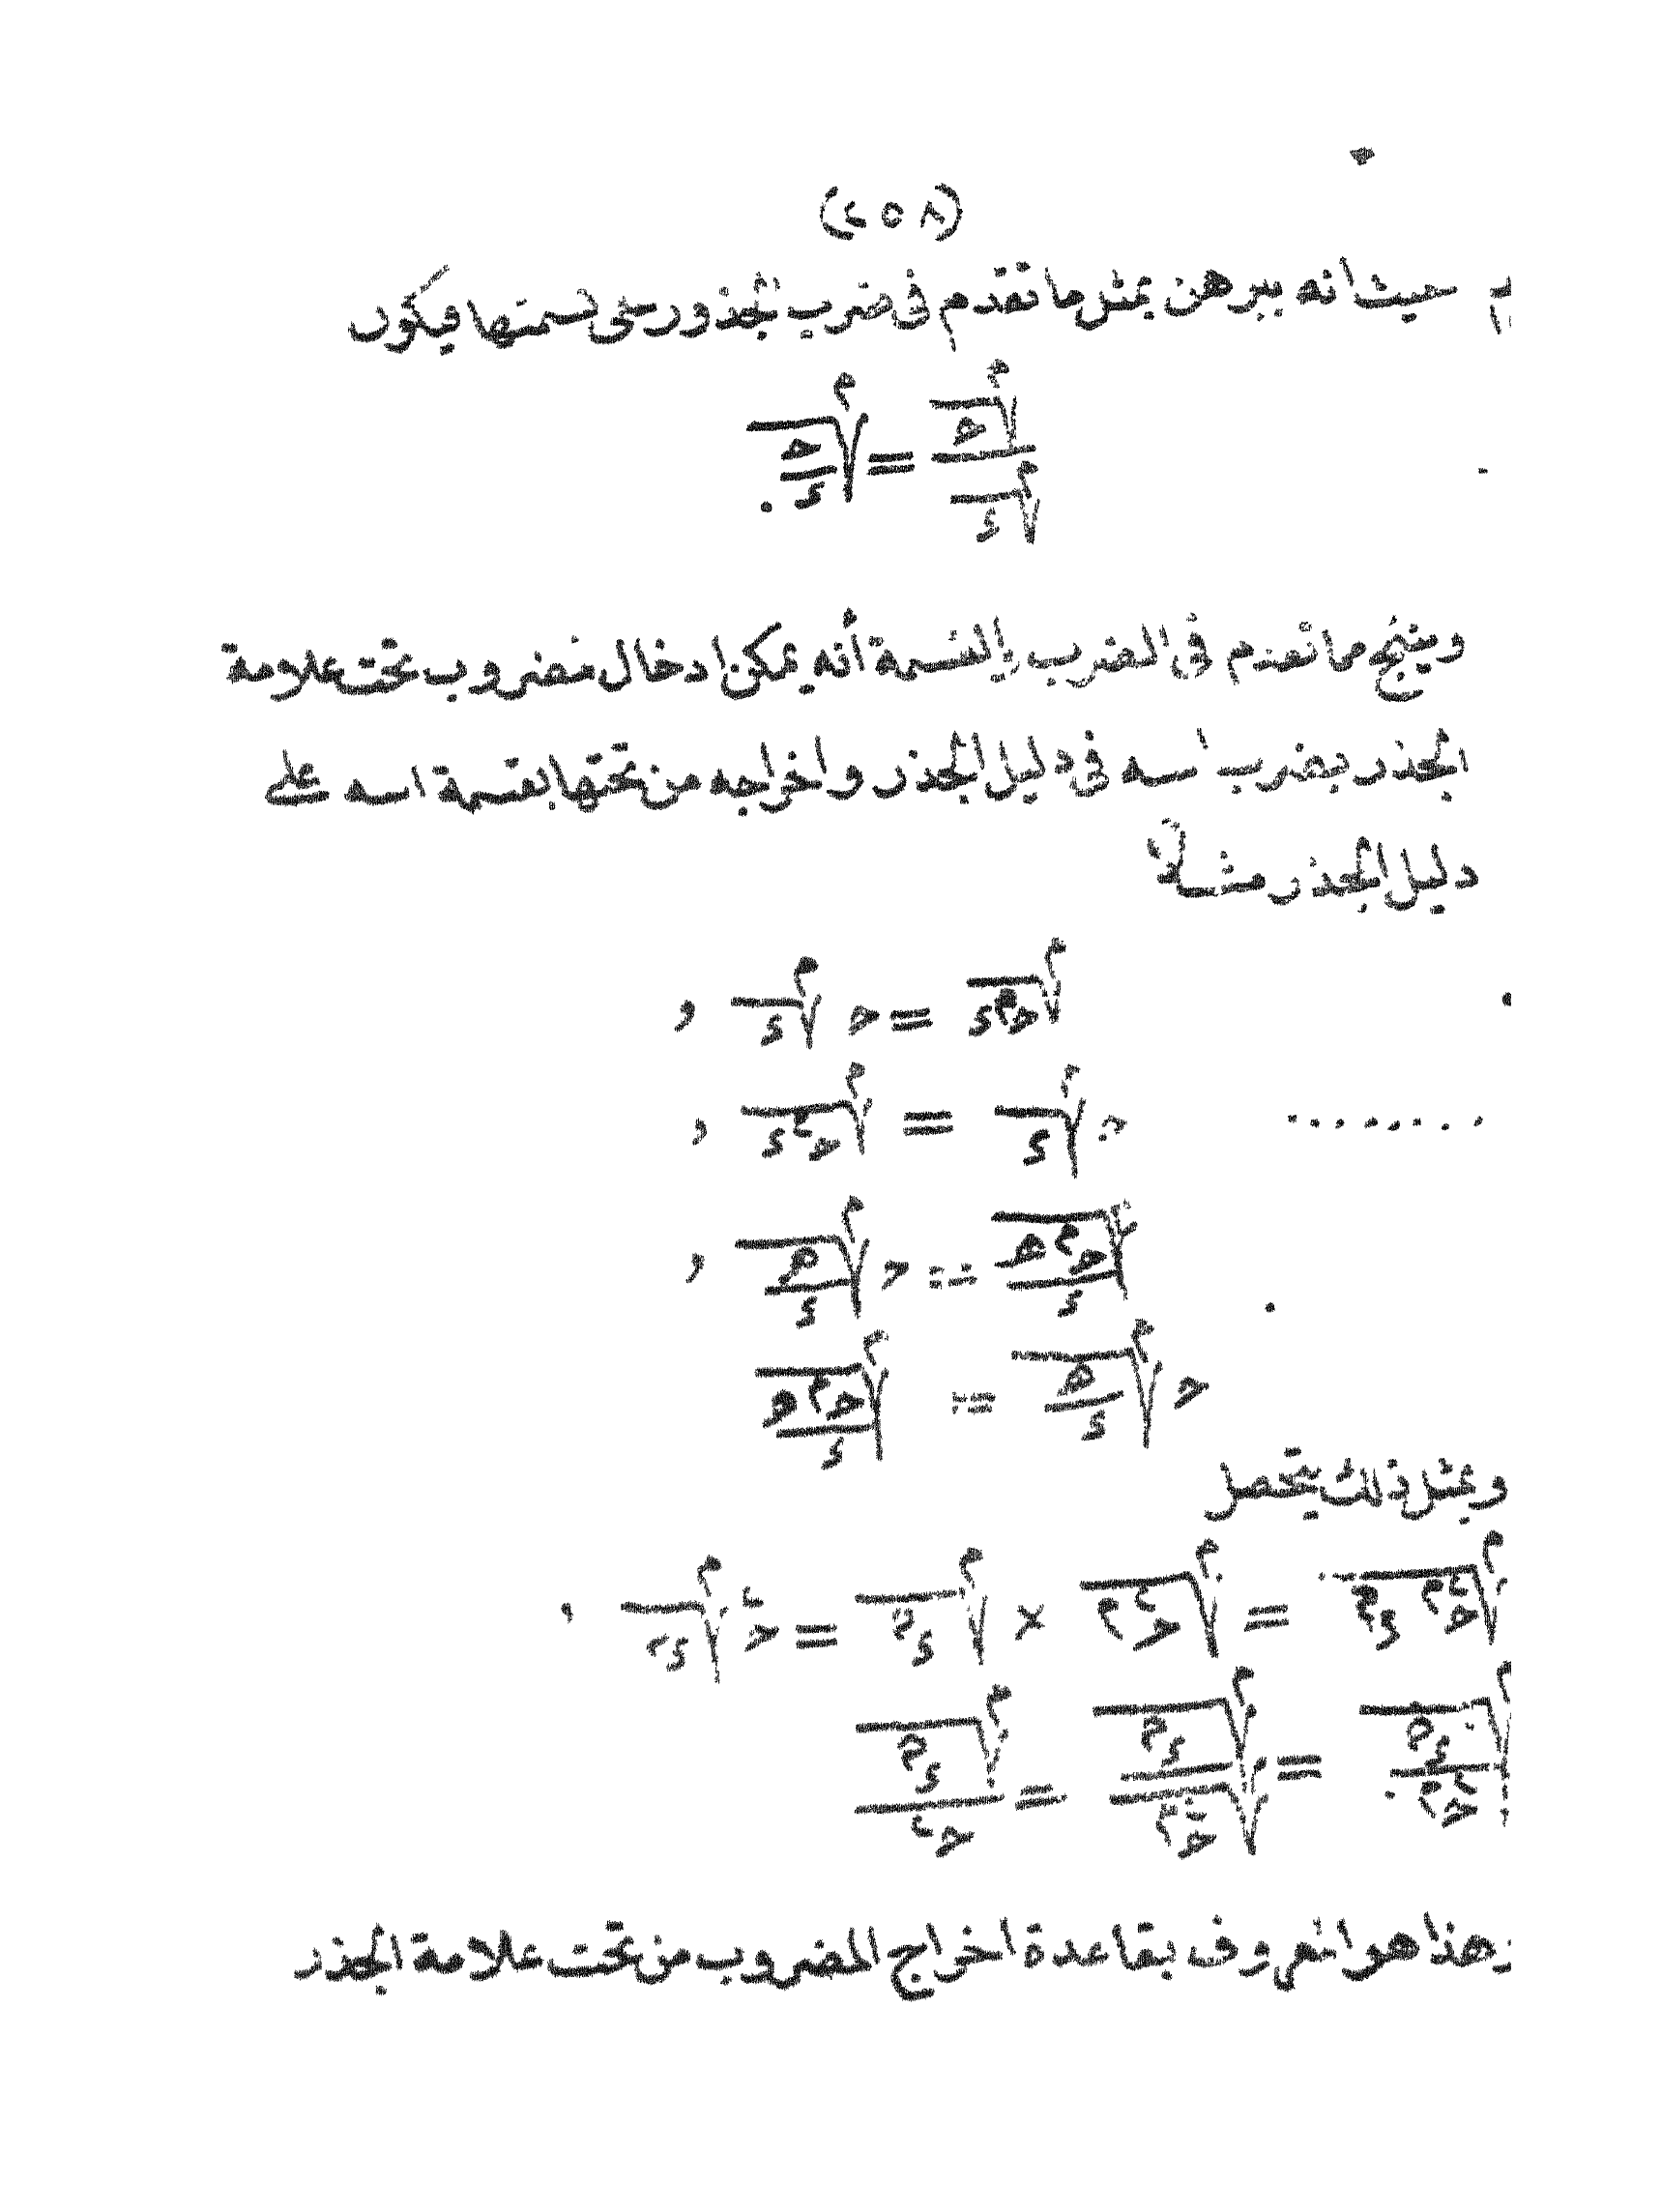 (٢٥٨)
حيث انه يبرهن بمثل ما تقدم فى ضرب الجذور على قسمتها فيكون
م√ھ / م√د = م√(ھ/د) .
وينتج مما تقدم فى الضرب والقسمة أنه يمكن ادخال مضروب تحت علامة
الجذر بضرب اسه فى دليل الجذر واخراجه من تحتها بقسمة اسه على
دليل الجذر مثلاً
م√(حᵐ د) = ح م√د ,
ح م√د = م√(حᵐ د) ,
م√(حᵐ ھ/د) = ح م√(ھ/د) ,
ح م√(ھ/د) = م√(حᵐ ھ/د)
وبمثل ذلك يتحصل
م√(ح^٢م د^م) = م√(ح^٢م) × م√(د^م) = ح^٢ م√(د^م) ,
م√(د^م / ح^٢م) = م√(د^م) / م√(ح^٢م) = م√(د^م) / ح^٢
وهذا هو المعروف بقاعدة اخراج المضروب من تحت علامة الجذر